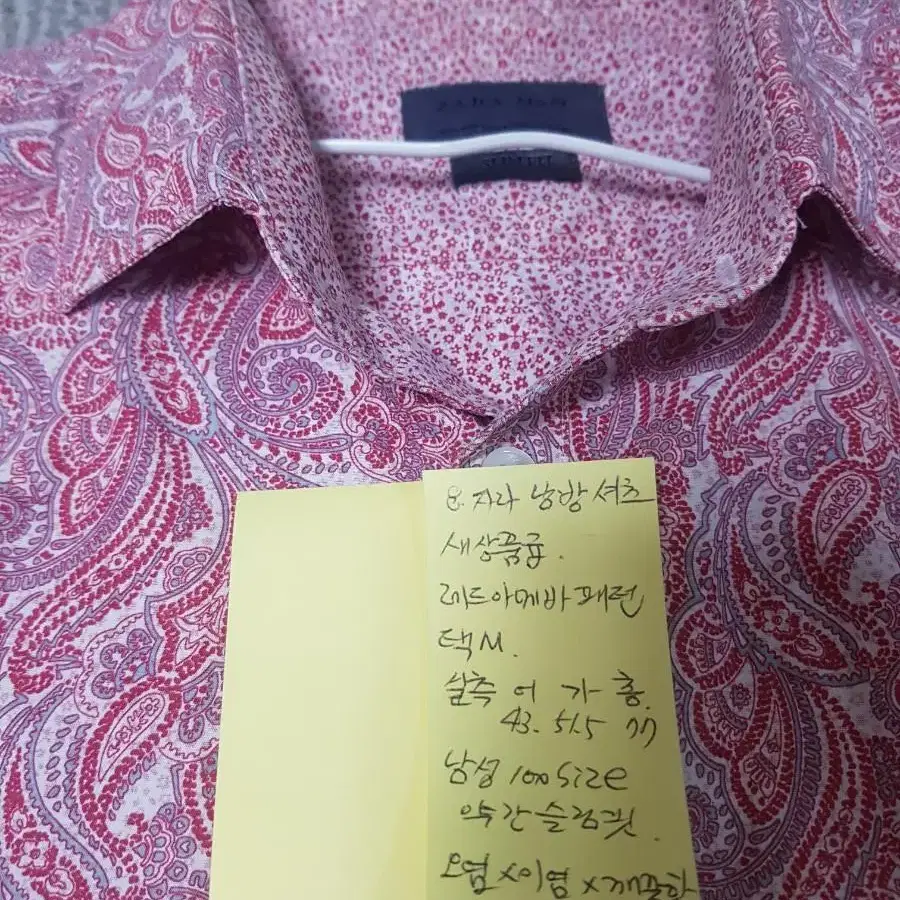 ZARA MAN
SLIM FIT
8. 자라 남방셔츠
새상품급.
레드아메바패턴
택M.
실측 어 가 총.
43. 51.5 77
남성 100 size
약간슬림핏.
오염x이염x깨끗함